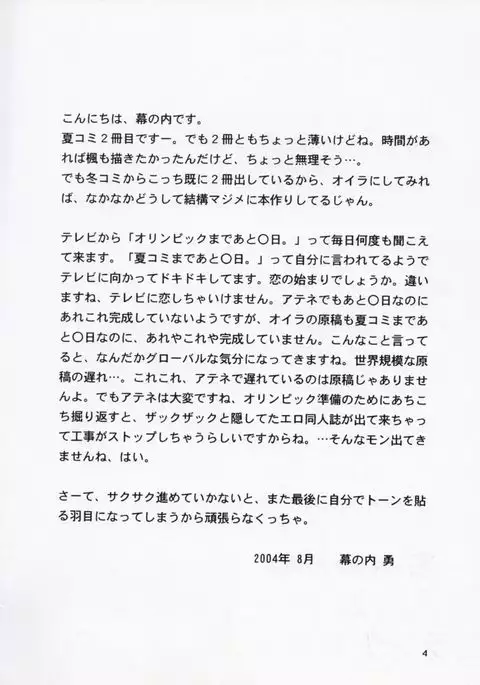 こんにちは、幕の内です。
夏コミ２冊目ですー。でも２冊ともちょっと薄いけどね。時間があ
れば楓も描きたかったんだけど、ちょっと無理そう…。
でも冬コミからこっち既に２冊出しているから、オイラにしてみれ
ば、なかなかどうして結構マジメに本作りしてるじゃん。
テレビから「オリンピックまであと〇日。」って毎日何度も聞こえ
て来ます。「夏コミまであと〇日。」って自分に言われてるようで
テレビに向かってドキドキしてます。恋の始まりでしょうか。違い
ますね、テレビに恋しちゃいけません。アテネでもあと〇日なのに
あれこれ完成していないようですが、オイラの原稿も夏コミまであ
と〇日なのに、あれやこれや完成していません。こんなこと言って
ると、なんだかグローバルな気分になってきますね。世界規模な原
稿の遅れ…。これこれ、アテネで遅れているのは原稿じゃありませ
んよ。でもアテネは大変ですね、オリンピック準備のためにあちこ
ち掘り返すと、ザックザックと隠してたエロ同人誌が出て来ちゃっ
て工事がストップしちゃうらしいですからね。…そんなモン出てき
ませんね、はい。
さーて、サクサク進めていかないと、また最後に自分でトーンを貼
る羽目になってしまうから頑張らなくっちゃ。
2004年 8月　幕の内 勇
4